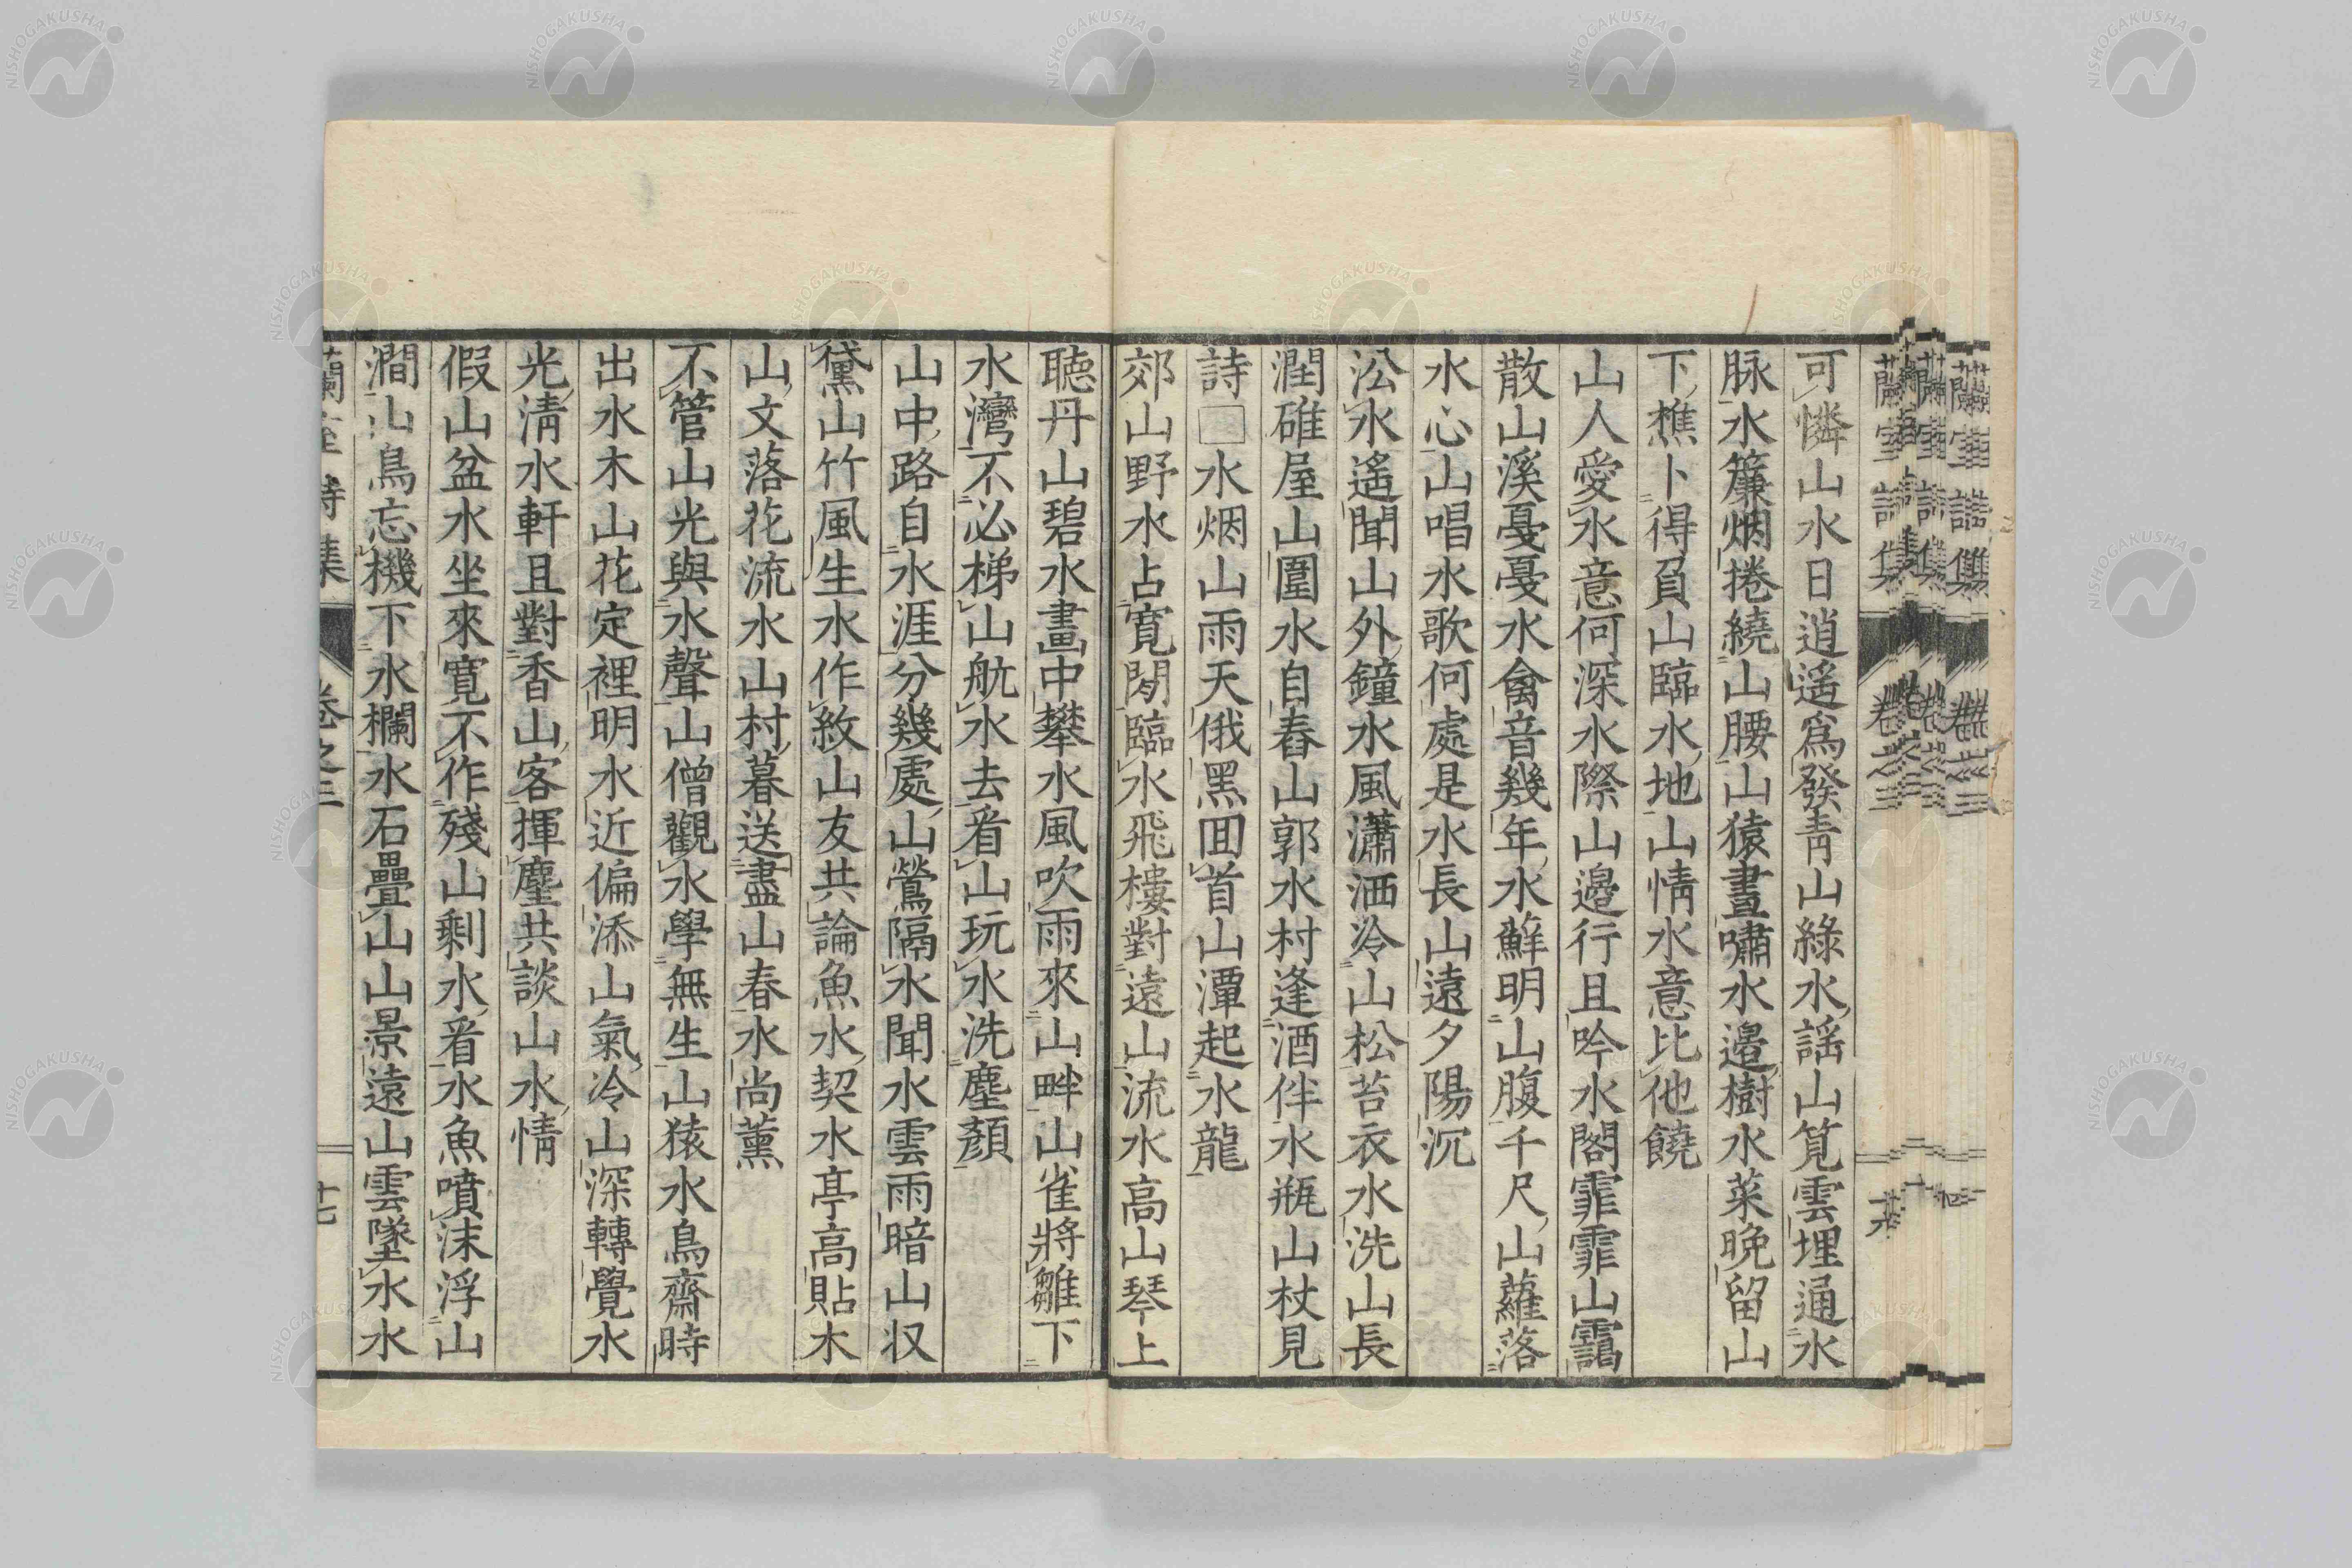 可憐山水日逍遙爲發靑山綠水謡山筧雲埋通水
脉水簾烟捲繞山腰山猿晝嘯水邉樹水菜晩留山
下樵卜得負山臨水地山情水意比他饒
山人愛水意何深水際山邉行且吟水閣霏霏山靄
散山溪戞戞水禽音幾年水蘚明山腹千尺山蘿落
水心山唱水歌何處是水長山遠夕陽沉
㳂水遙聞山外鐘水風瀟洒冷山松苔衣水洗山長
潤碓屋山圍水自舂山郭水村逢酒伴水瓶山杖見
詩□水烟山雨天俄黑回首山潭起水龍
郊山野水占寛閑臨水飛樓對遠山流水高山琴上
聽丹山碧水畫中攀水風吹雨來山畔山雀將雛下
水灣不必梯山航水去看山玩水洗塵顏
山中路自水涯分幾處山鶯隔水聞水雲雨暗山収
黛山竹風生水作紋山友共論魚水契水亭高貼木
山文落花流水山村暮送盡山春水尚薰
不管山光與水聲山僧觀水學無生山猿水鳥齋時
出水木山花定裡明水近偏添山氣冷山深轉覺水
光淸水軒且對香山客揮麈共談山水情
假山盆水坐來寛不作殘山剩水看水魚噴沫浮山
澗山鳥忘機下水欄水石疊山山景遠山雲墜水水
蘭室詩集 卷之三 十七
NISHOGAKUSHA